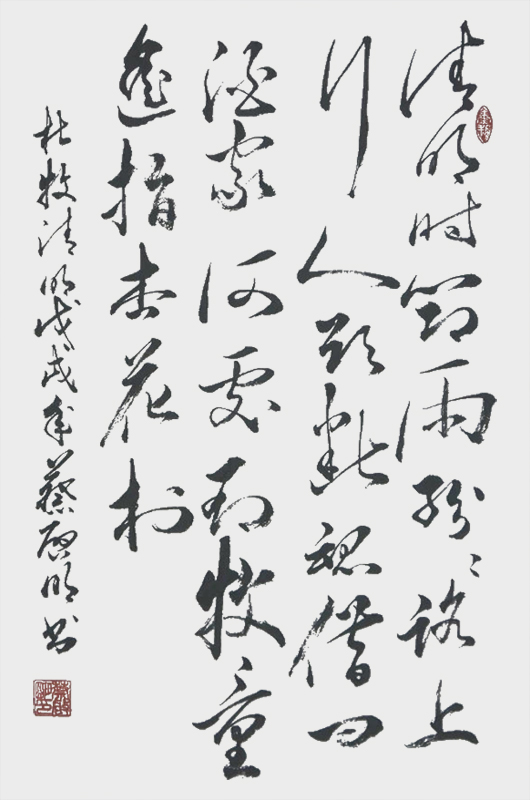 清明时节雨纷〻路上
行人欲断魂借问
酒家何处有牧童
遥指杏花村
杜牧清明戊戌年蔡启明书